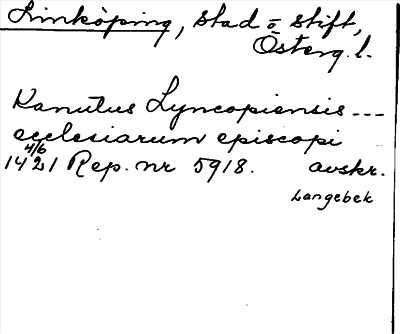 Linköping, stad o stift,
Österg. l.
Kanutus Lyncopiensis ---
ecclesiarum episcopi
4/6
1421 Rep. nr 5918. avskr.
Langebek